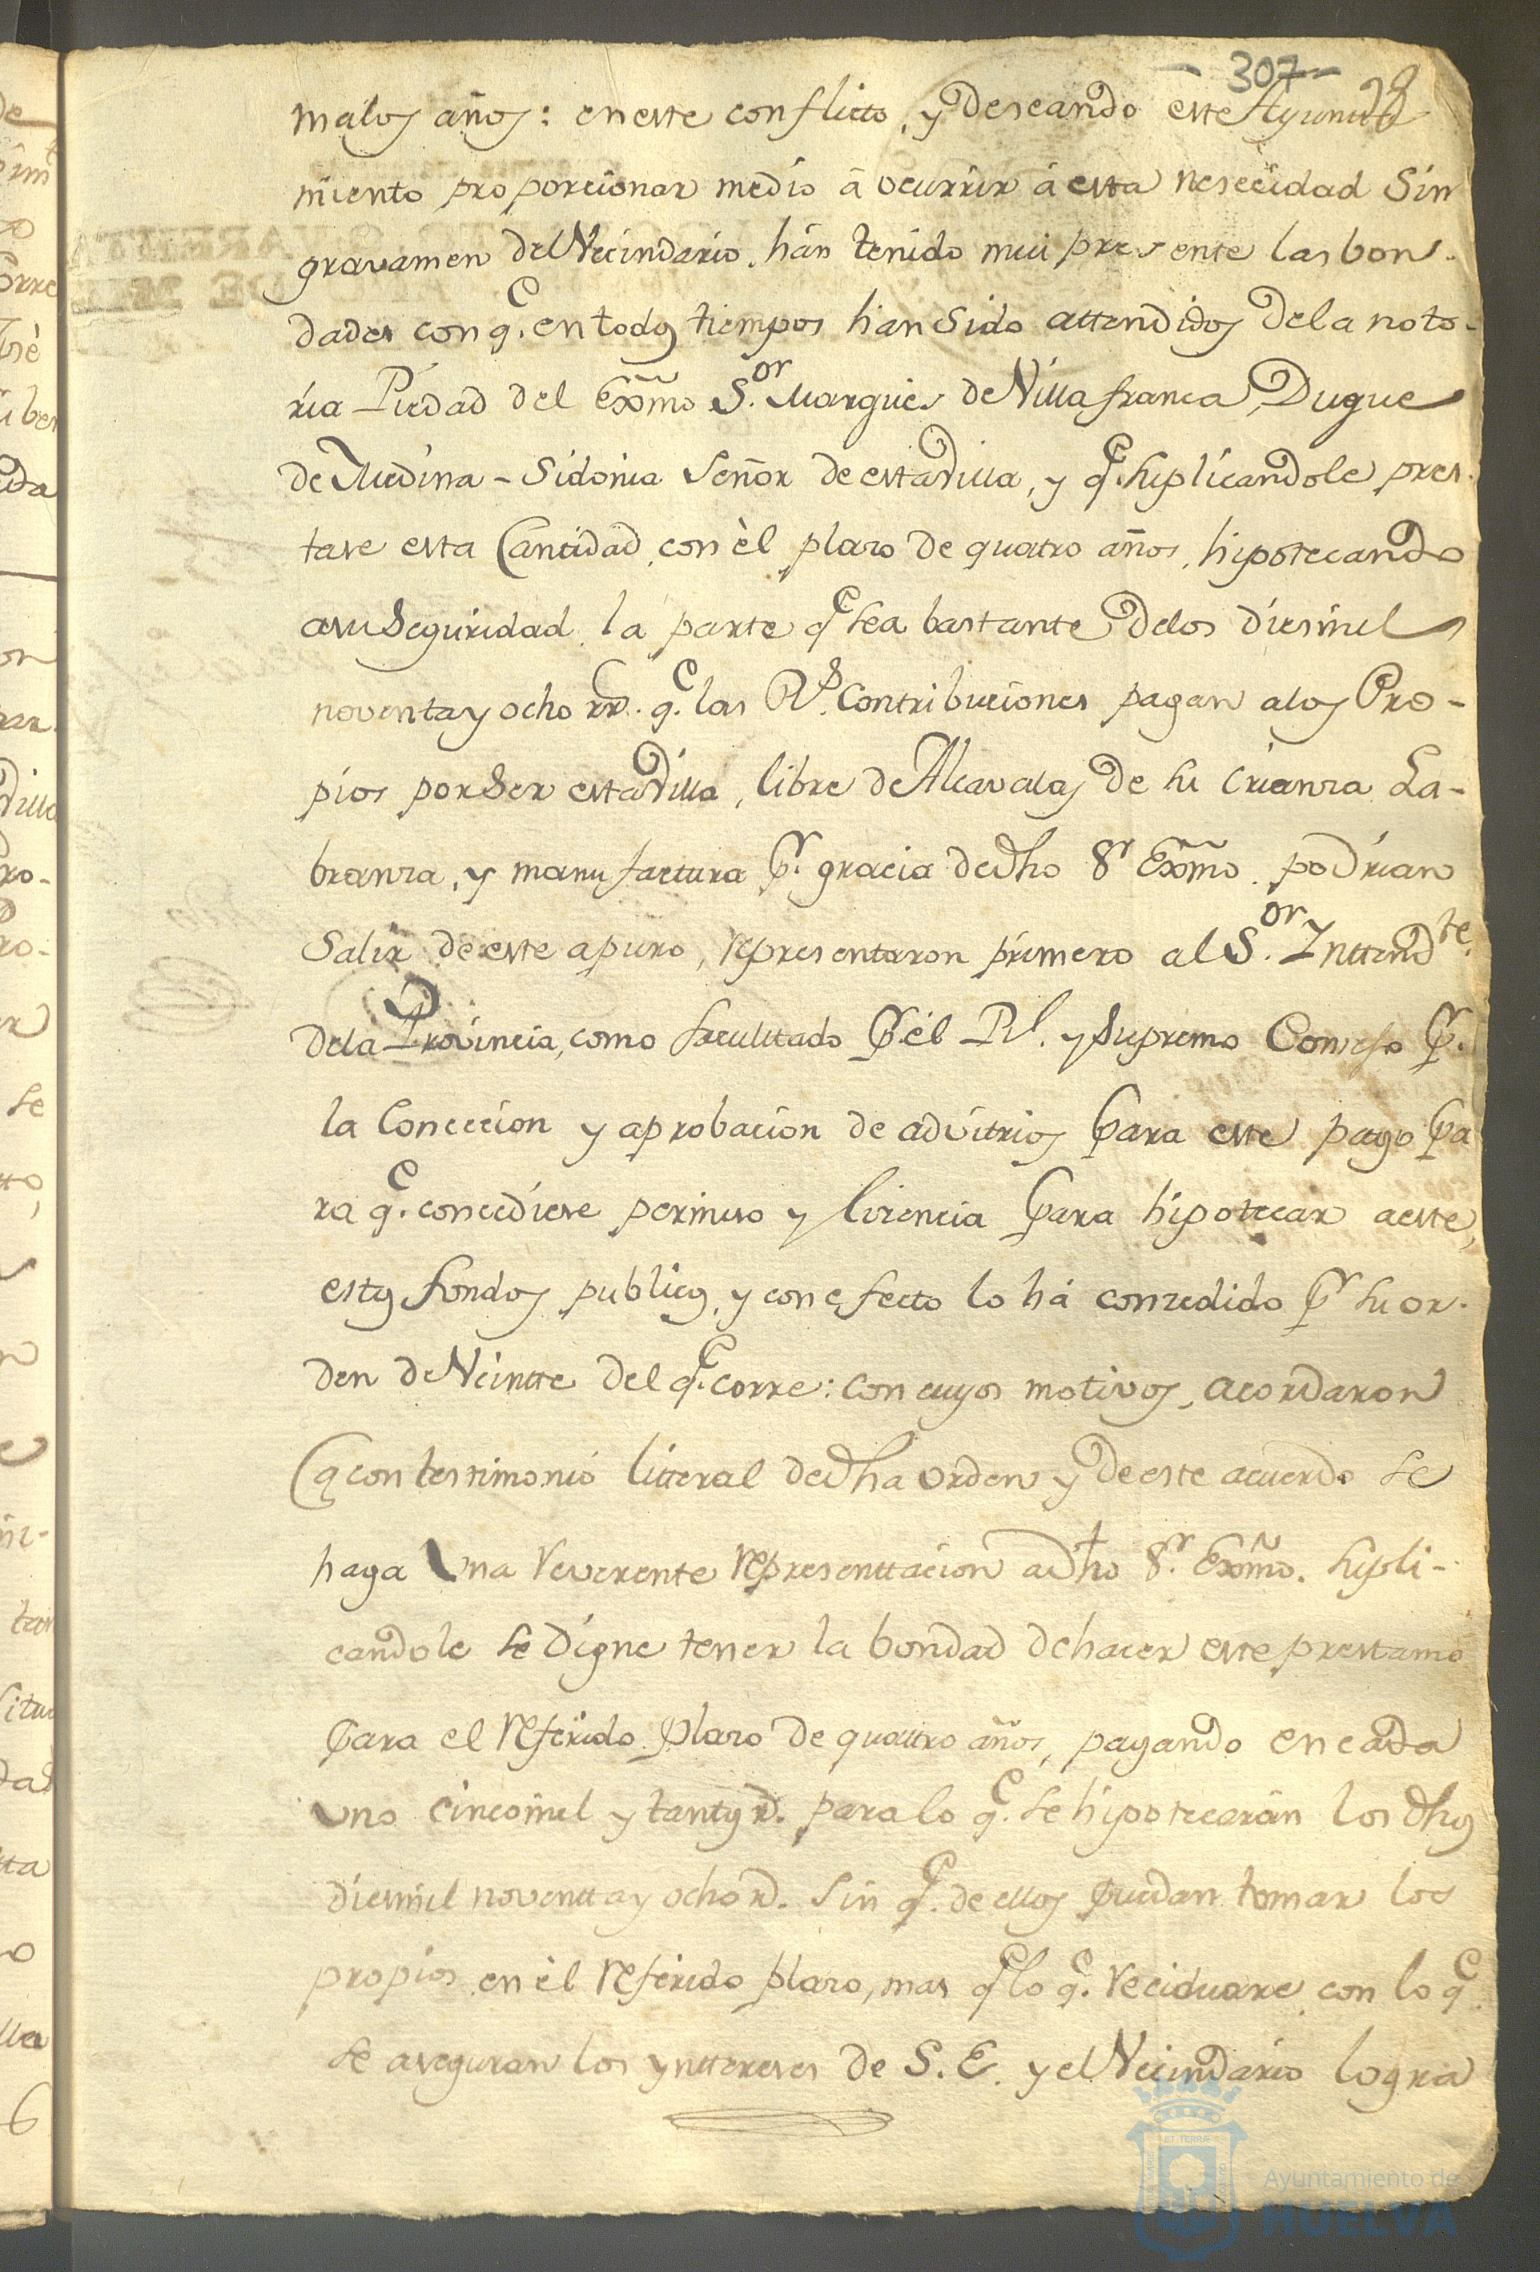 - 307 -
malos años: en este conflicto, y deseando este Ayunta
miento proporcionar medio â ocurrir â esta nesecidad Sin
gravamen del Vecindario, hán tenido mui presente las bon-
dades con q.e en todos tiempos han Sido attendidos de la noto-
ria Piedad del Exmo S.or Marques de Villafranca, Duque
de Medina-Sidonia Señor de esta Villa, y q.e suplicandole pres-
tase esta Cantidad, con èl plazo de quatro años, hipotecando
a su Seguridad la parte q.e sea bastante de los diesmil
noventa y ocho rr. q.e las R.s Contribuciones pagan a los Pro-
pios por Ser esta Villa, libre de Alcavalas de su Crianza La-
branza, y manufactura p.r gracia de dho S.r Exmo. podrian
Salir de este apuro, representaron primero al S.or Inttend.te
de la Provincia, como facultado p.r él R.l y Supremo Consejo p.r
la Coneccion y aprobacion de advitrios para este pago pa
ra q.e concediese permiso y licencia para hipotecar a este,
estos fondos publicos, y con efecto lo há conzedido p.r su or-
den de Veintte del q.e corre: con cuyos motivos, acordaron
q con testimonio litteral de dha orden y de este acuerdo se
haga Una reverente representtacion a dho S.r Exmo. supli-
candole se digne tener la bondad de hacer este prestamo
para el referido plazo de quattro años, pagando en cada
uno cincomil y tantos r.s para lo q.e se hipotecarán los dhos
diesmil noventta y ocho r.s Sin q.e de ellos puedan tomar los
propios en èl referido plazo, mas q.e lo q.e reciduare con lo q.e
se aseguran los yntterezes de S. E. y el Vecindario logra
Ayuntamiento de
HUELVA